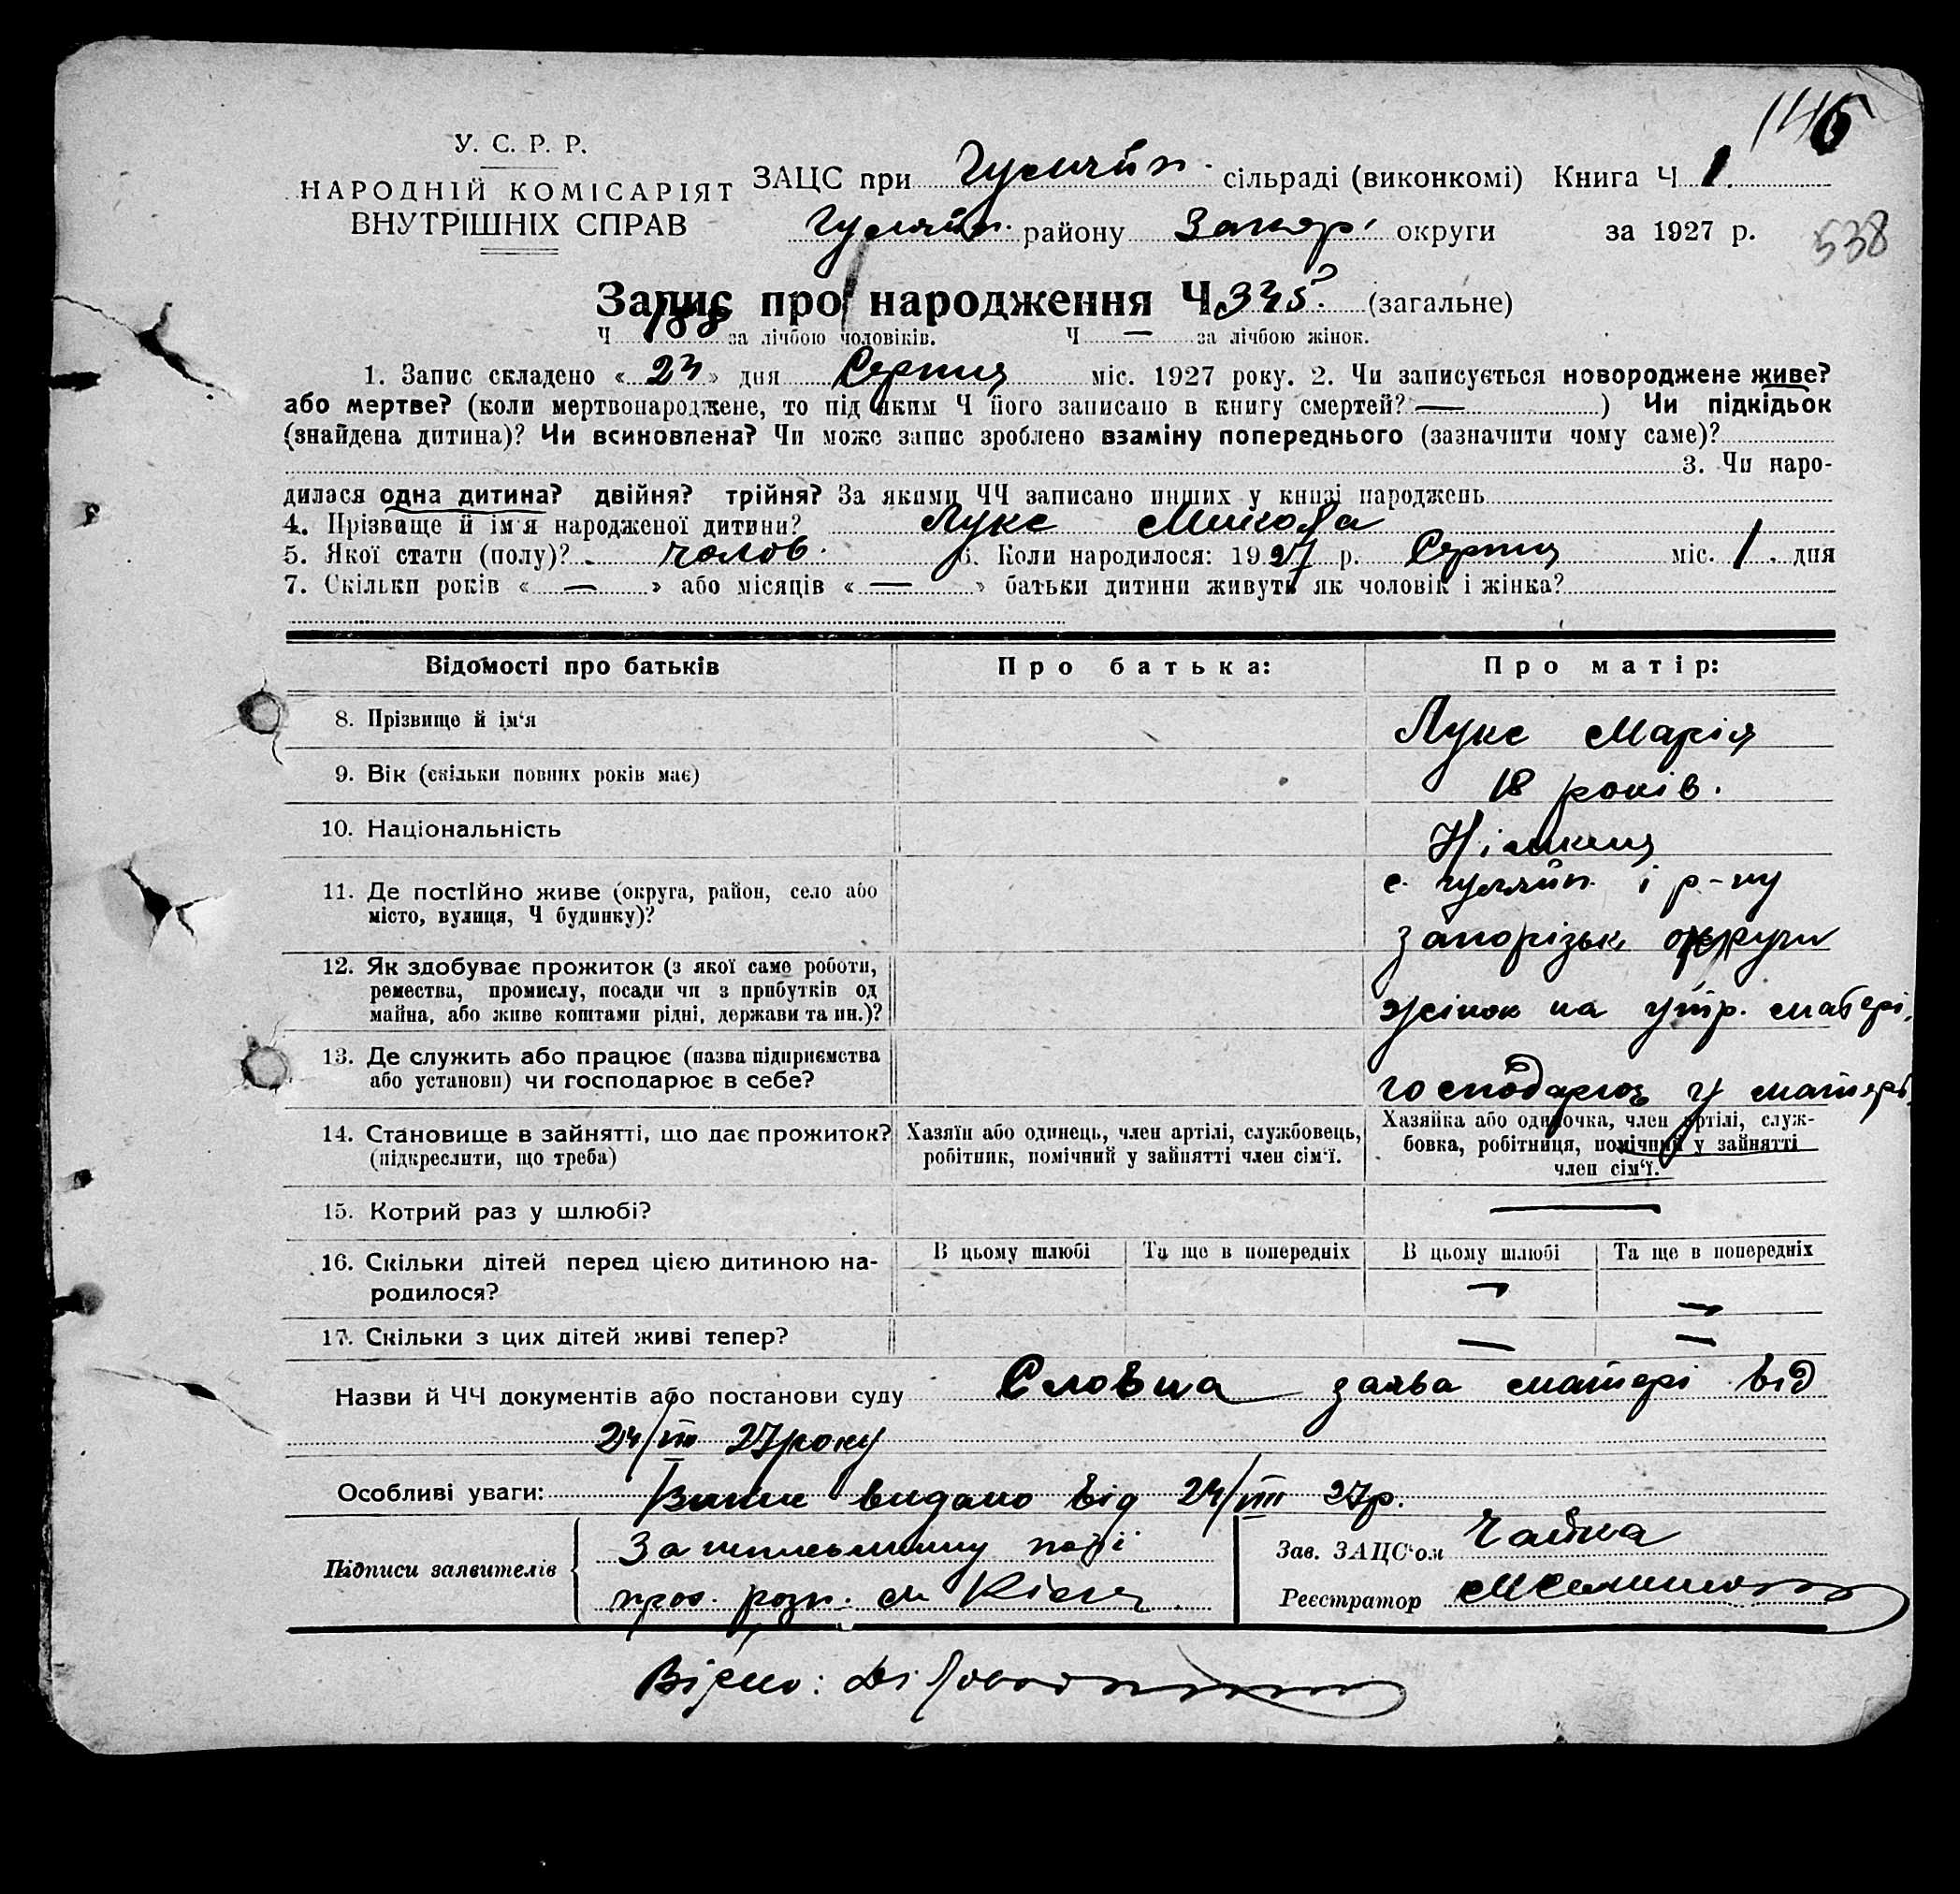 146
У. С. Р. Р.
НАРОДНІЙ КОМІСАРІЯТ
ВНУТРІШНІХ СПРАВ
ЗАЦС при Гуляйп. сільраді (виконкомі) Книга Ч 1.
Гуляйп. району Запор. округи за 1927 р.
538
Запис про народження Ч (загальне)
Ч 188 за лічбою чоловіків. Ч — за лічбою жінок.
1. Запис складено « » дня Серпня міс. 1927 року. 2. Чи записується новороджене живе?
або мертве? (коли мертвонароджене, то під яким Ч його записано в книгу смертей? — ) Чи підкідьок
(знайдена дитина)? Чи всиновлена? Чи може запис зроблено взаміну попереднього (зазначити чому саме)?
3. Чи наро-
дилася одна дитина? двійня? трійня? За якими ЧЧ записано инших у книзі народжень
4. Прізвище й ім'я народженої дитини? Лукс Микола
5. Якої стати (полу)? чолов. 6. Коли народилося: 1927 р. Серпня міс. 1. дня
7. Скільки років « — » або місяців « — » батьки дитини живуть як чоловік і жінка?
Відомості про батьків Про батька: Про матір:
8. Прізвище й ім'я Лукс Марія
9. Вік (скільки повних років має) 18 років.
10. Національність Німкеня
11. Де постійно живе (округа, район, село або с. Гуляйп. і р-ну
місто, вулиця, Ч будинку)? Запорізьк округи
12. Як здобуває прожиток (з якої саме роботи,
ремества, промислу, посади чи з прибутків од
майна, або живе коштами рідні, держави та ин.)? жінок на утр. матері.
13. Де служить або працює (назва підприємства
або установи) чи господарює в себе? господарює у матері.
14. Становище в зайнятті, що дає прожиток? Хазяїн або одинець, член артілі, службовець, Хазяйка або одиночка, член артілі, служ-
(підкреслити, що треба) робітник, помічний у зайнятті член сім'ї. бовка, робітниця, помічний у зайнятті
член сім'ї.
15. Котрий раз у шлюбі? —
16. Скільки дітей перед цією дитиною на- В цьому шлюбі Та ще в попередніх В цьому шлюбі Та ще в попередніх
родилося? — —
17. Скільки з цих дітей живі тепер? — —
Назви й ЧЧ документів або постанови суду Словна заява матері від
24/VIII 27 року
Особливі уваги: видано від 24/VIII 27р.
Підписи заявителів За
Зав. ЗАЦС'ом Чайка
Реєстратор
Вірно: